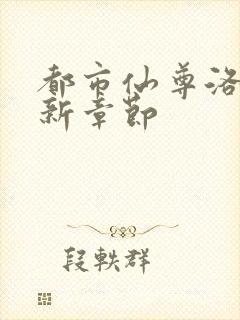 都市仙尊洛
新章节
段轶群